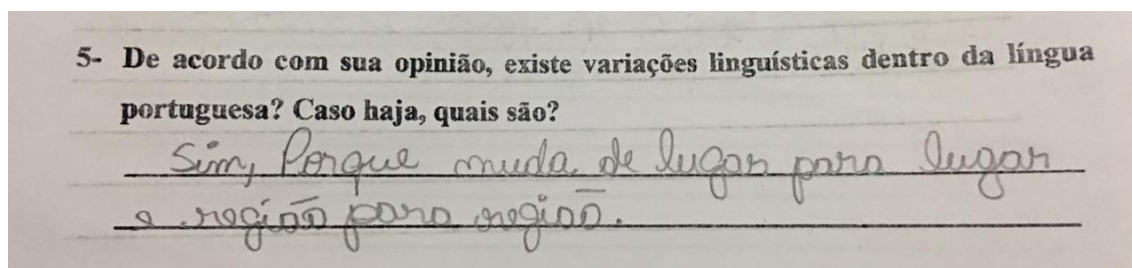 5- De acordo com sua opinião, existe variações linguísticas dentro da língua
portuguesa? Caso haja, quais são?
Sim, Porque muda de lugar para lugar
e região para região.